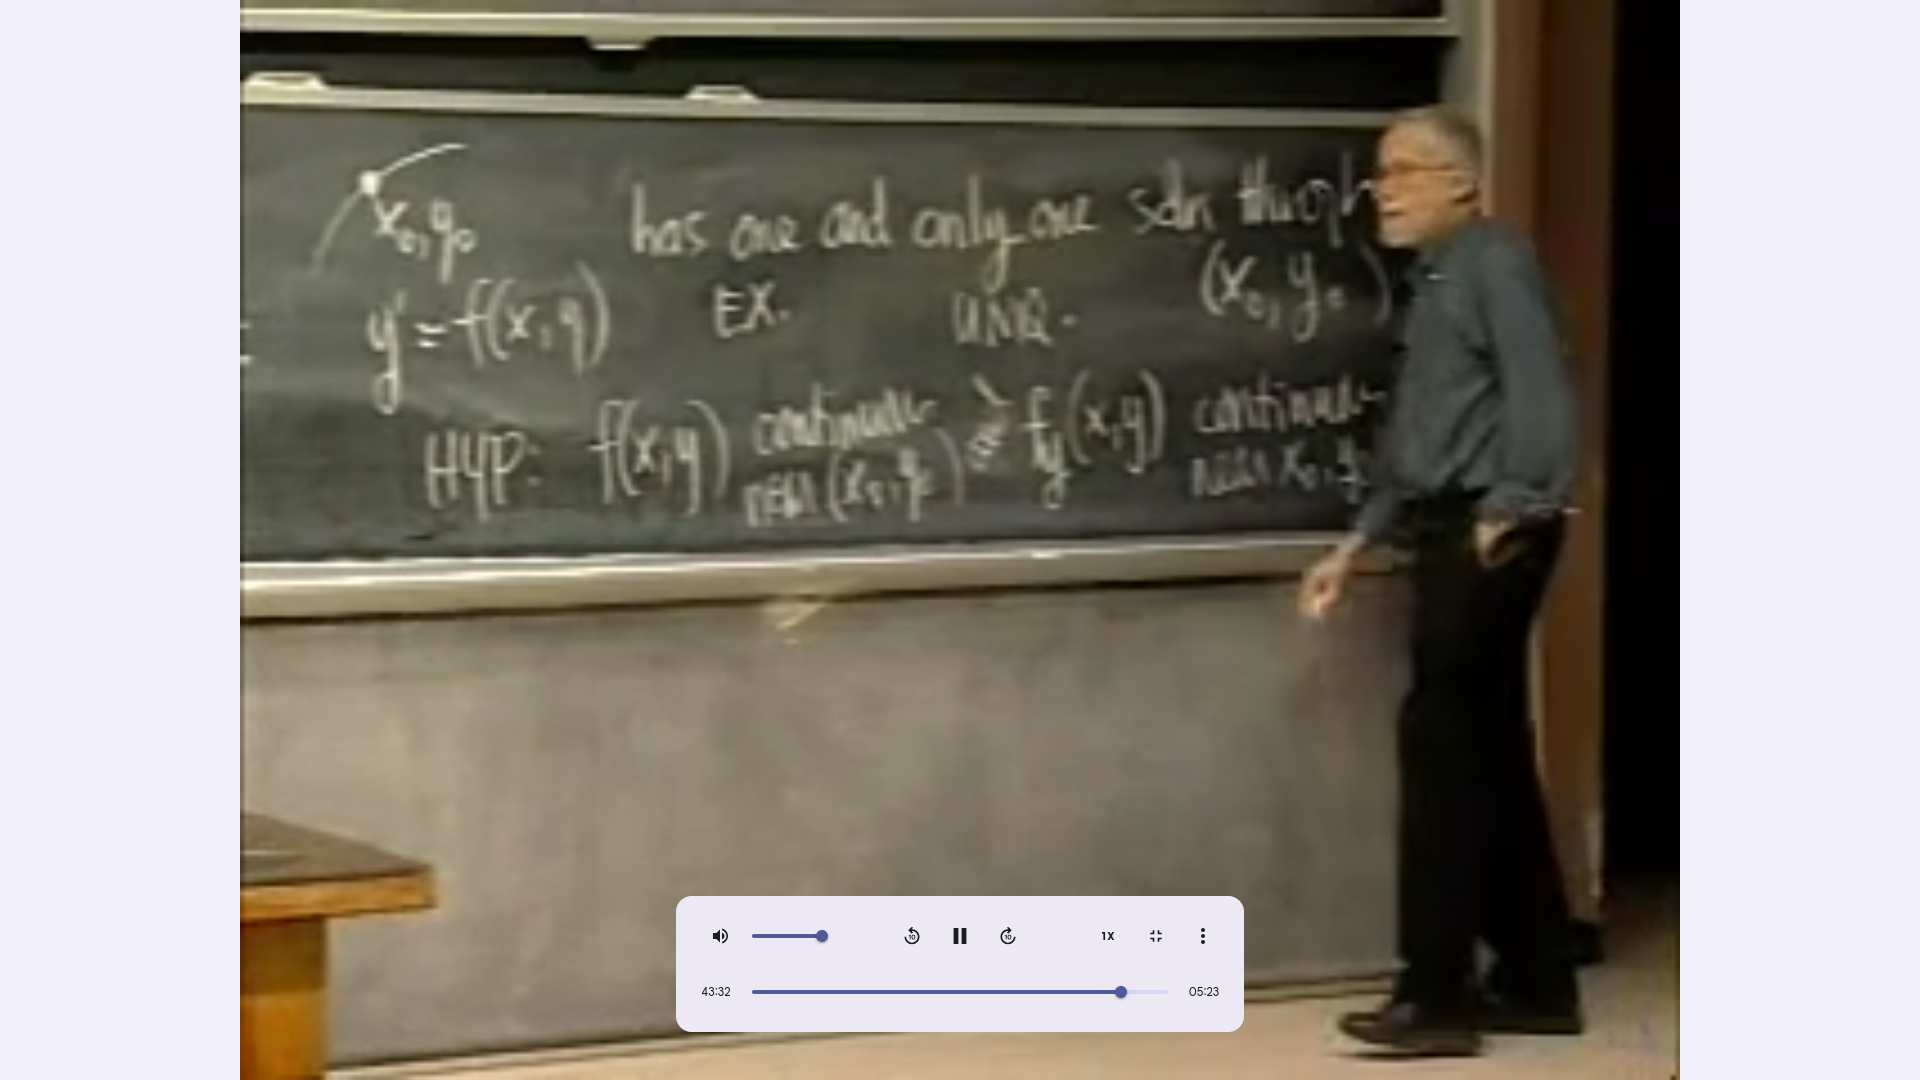 x₀,y₀
has one and only one soln through
(x₀, y₀)
y' = f(x,y)
EX.
UNQ.
HYP: f(x,y) continuous
near (x₀,y₀)
f_y(x,y) continuous
near x₀,y₀
1X
43:32
05:23